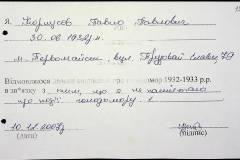 Я, Корнусов Павло Павлович
30.06.1932р.
м. Первомайськ, вул. Трудової Слави, 79
Відмовляюся
1932-1933 р.р.
в зв'язку з тим, що я не пам'ятаю
про події голодомору.
10.12.2007р.
(дата)
(підпис)